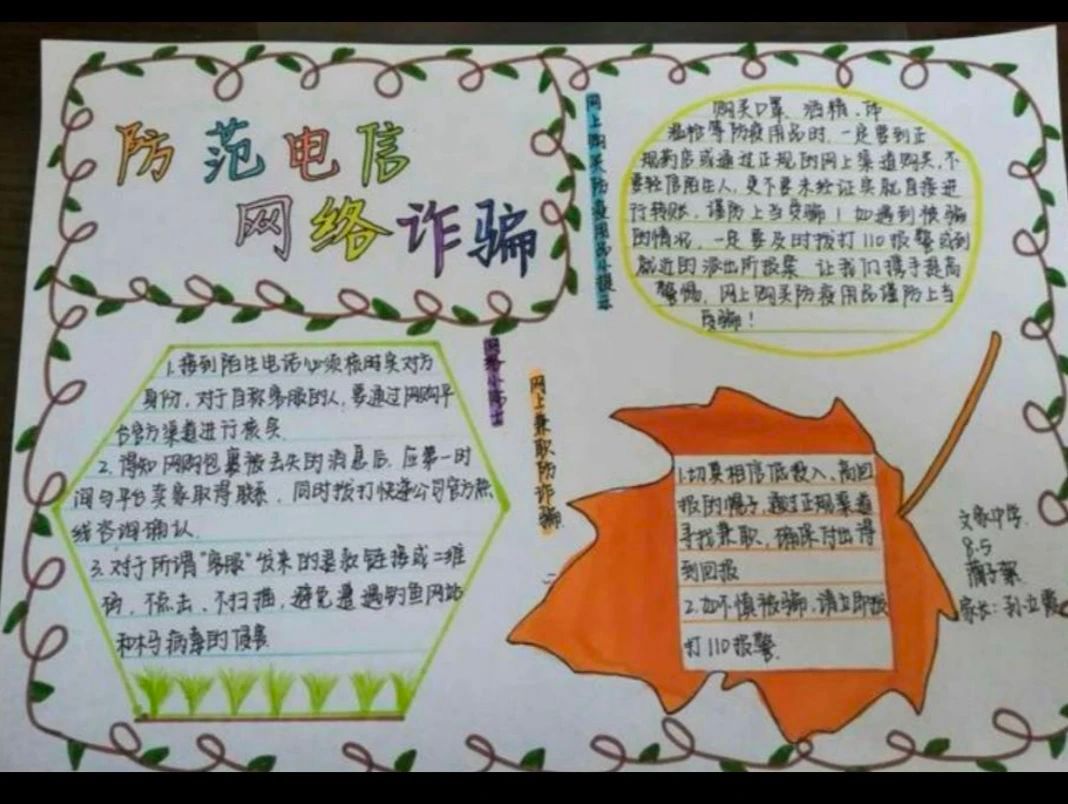 防范电信
网络诈骗
网上购买防疫用品小提示
购买口罩、酒精、体
温枪等防疫用品时，一定要到正
规药店或通过正规的网上渠道购买，不
要轻信陌生人，更不要未经证实就直接进
行转账，谨防上当受骗！如遇到被骗
的情况，一定要及时拨打110报警或到
就近的派出所报案 让我们携手提高
警惕，网上购买防疫用品谨防上当
受骗！
网络小贴士
1.接到陌生电话必须核实对方
身份，对于自称客服的人，要通过网购平
台官方渠道进行核实
2.得知网购包裹被丢失的消息后，应第一时
间与平台卖家取得联系，同时拨打快递公司官方热
线咨询确认
3.对于所谓"客服"发来的退款链接或二维
码，不点击、不扫描，避免遭遇钓鱼网站
和木马病毒的侵害
网上兼职防诈骗
1.切莫相信低投入、高回
报的幌子，通过正规渠道
寻找兼职，确保付出得
到回报
2.如不慎被骗，请立即拨
打110报警
中学
8.5
家长：孙立霞